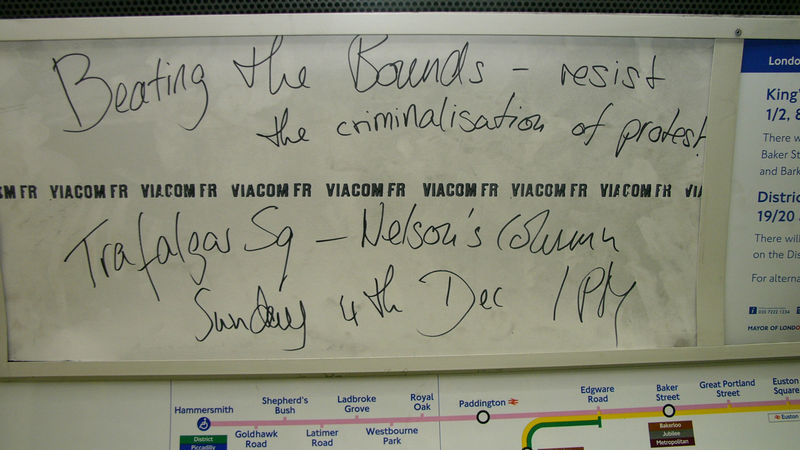 Beating the Bounds - resist
the criminalisation of protest
VIACOM FR VIACOM FR VIACOM FR VIACOM FR VIACOM FR VIACOM FR
Trafalgar Sq - Nelson's Column
Sunday 4th Dec 1PM
Londo
King'
1/2, 8
There w
Baker St
and Bark
Distric
19/20
There will
on the Dis
For alterna
020 7222 1234
MAYOR OF LONDO
Hammersmith
District
Piccadilly
Goldhawk
Road
Shepherd's
Bush
Latimer
Road
Ladbroke
Grove
Westbourne
Park
Royal
Oak
Paddington
Edgware
Road
Baker
Street
Bakerloo
Jubilee
Metropolitan
Great Portland
Street
Euston
Square
Euston